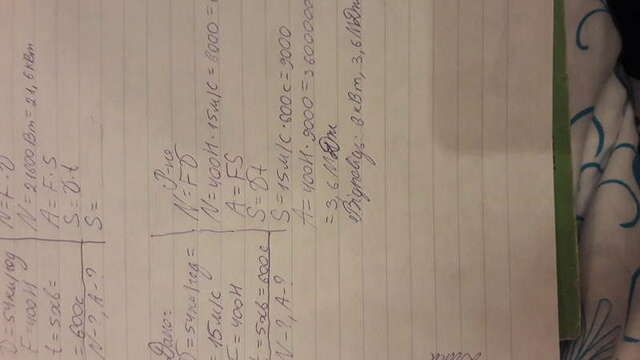 υ=54км/год
F=400Н
t=5хв=
=600с
N-?, A-?
N=F·υ
N=21600Вт=21,6кВт
A=F·S
S=υ·t
S=
Дано:
υ=54км/год=
=15м/с
F=400Н
t=5хв=600с
N-?, A-?
N=Fυ
N=400Н·15м/с=6000=
A=FS
S=υt
S=15м/с·600с=9000
A=400Н·9000=3600000
=3,6МДж
Відповідь: 6кВт, 3,6МДж